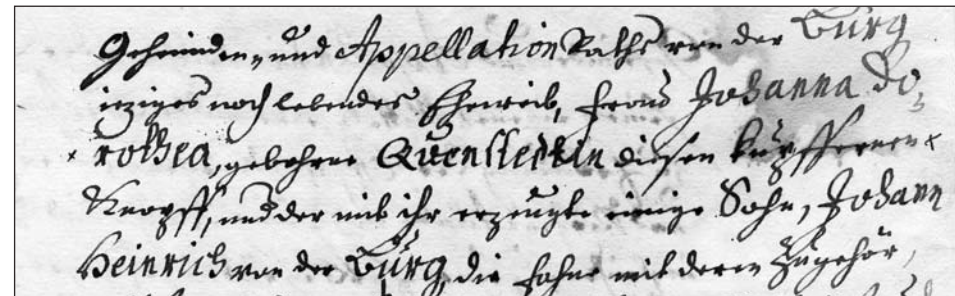 Geheimden- und Appellation Raths von der Burg
ieziges noch lebendes Eheweib, Frau Johanna Do,
rothea, gebohrne Quenstedtin diesen kupffernen
Knopff, und der mit ihr erzeugte einige Sohn, Johann
Heinrich von der Burg, die Fahne mit deren Zugehör,